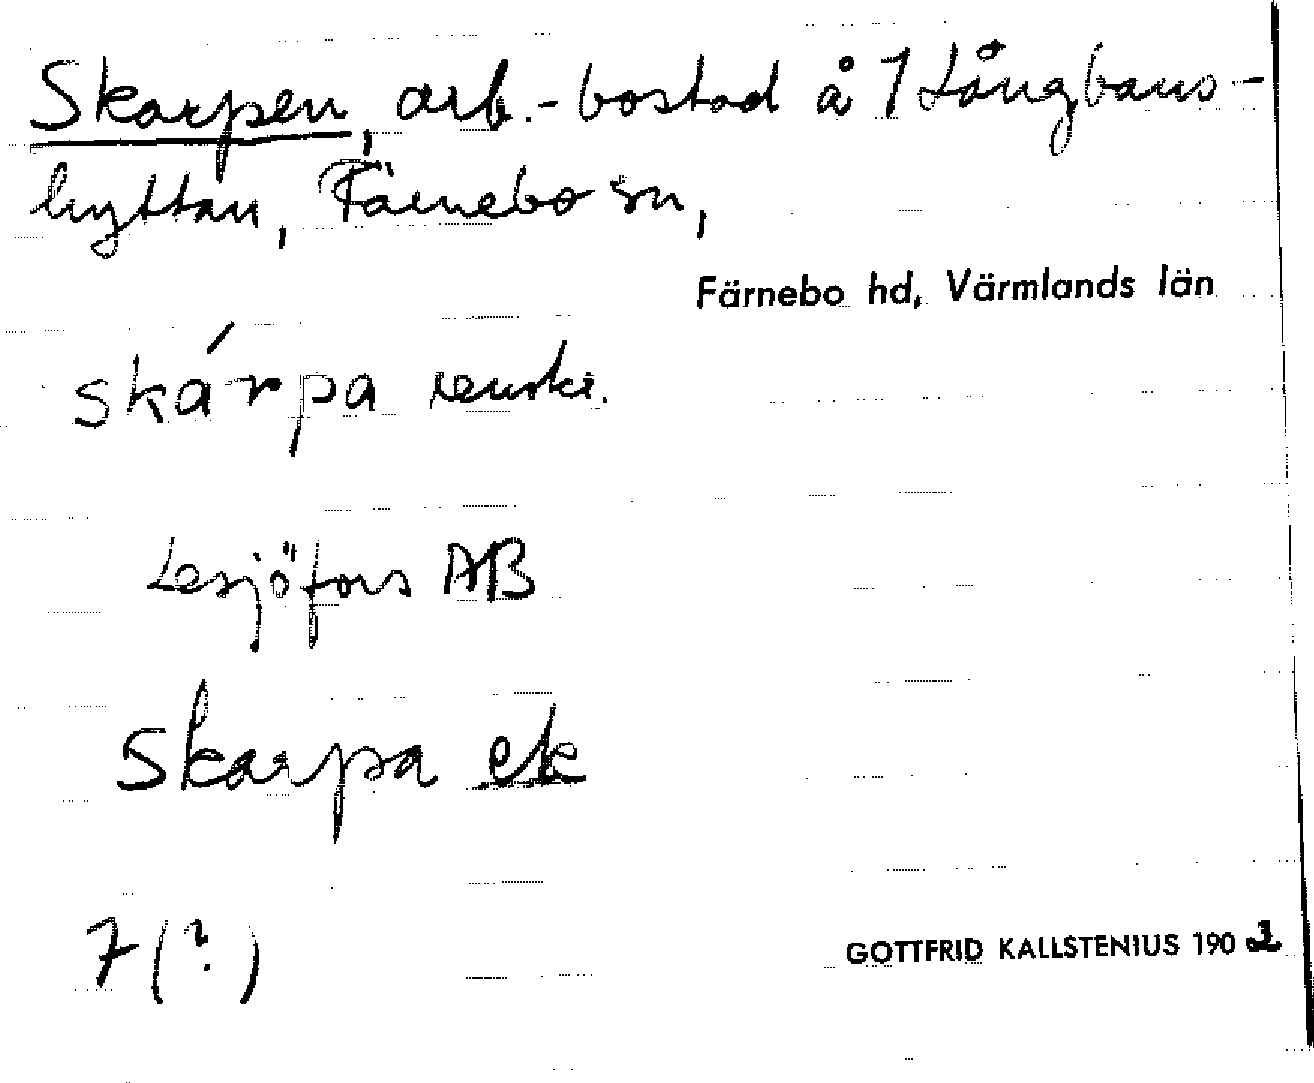 Skarpen, arb.-bostad å 1 Långbans-
hyttan, Färnebo sn,
Färnebo hd, Värmlands län
skárpa
Lesjöfors AB
Skarpa ek
7 (?)
GOTTFRID KALLSTENIUS 1902